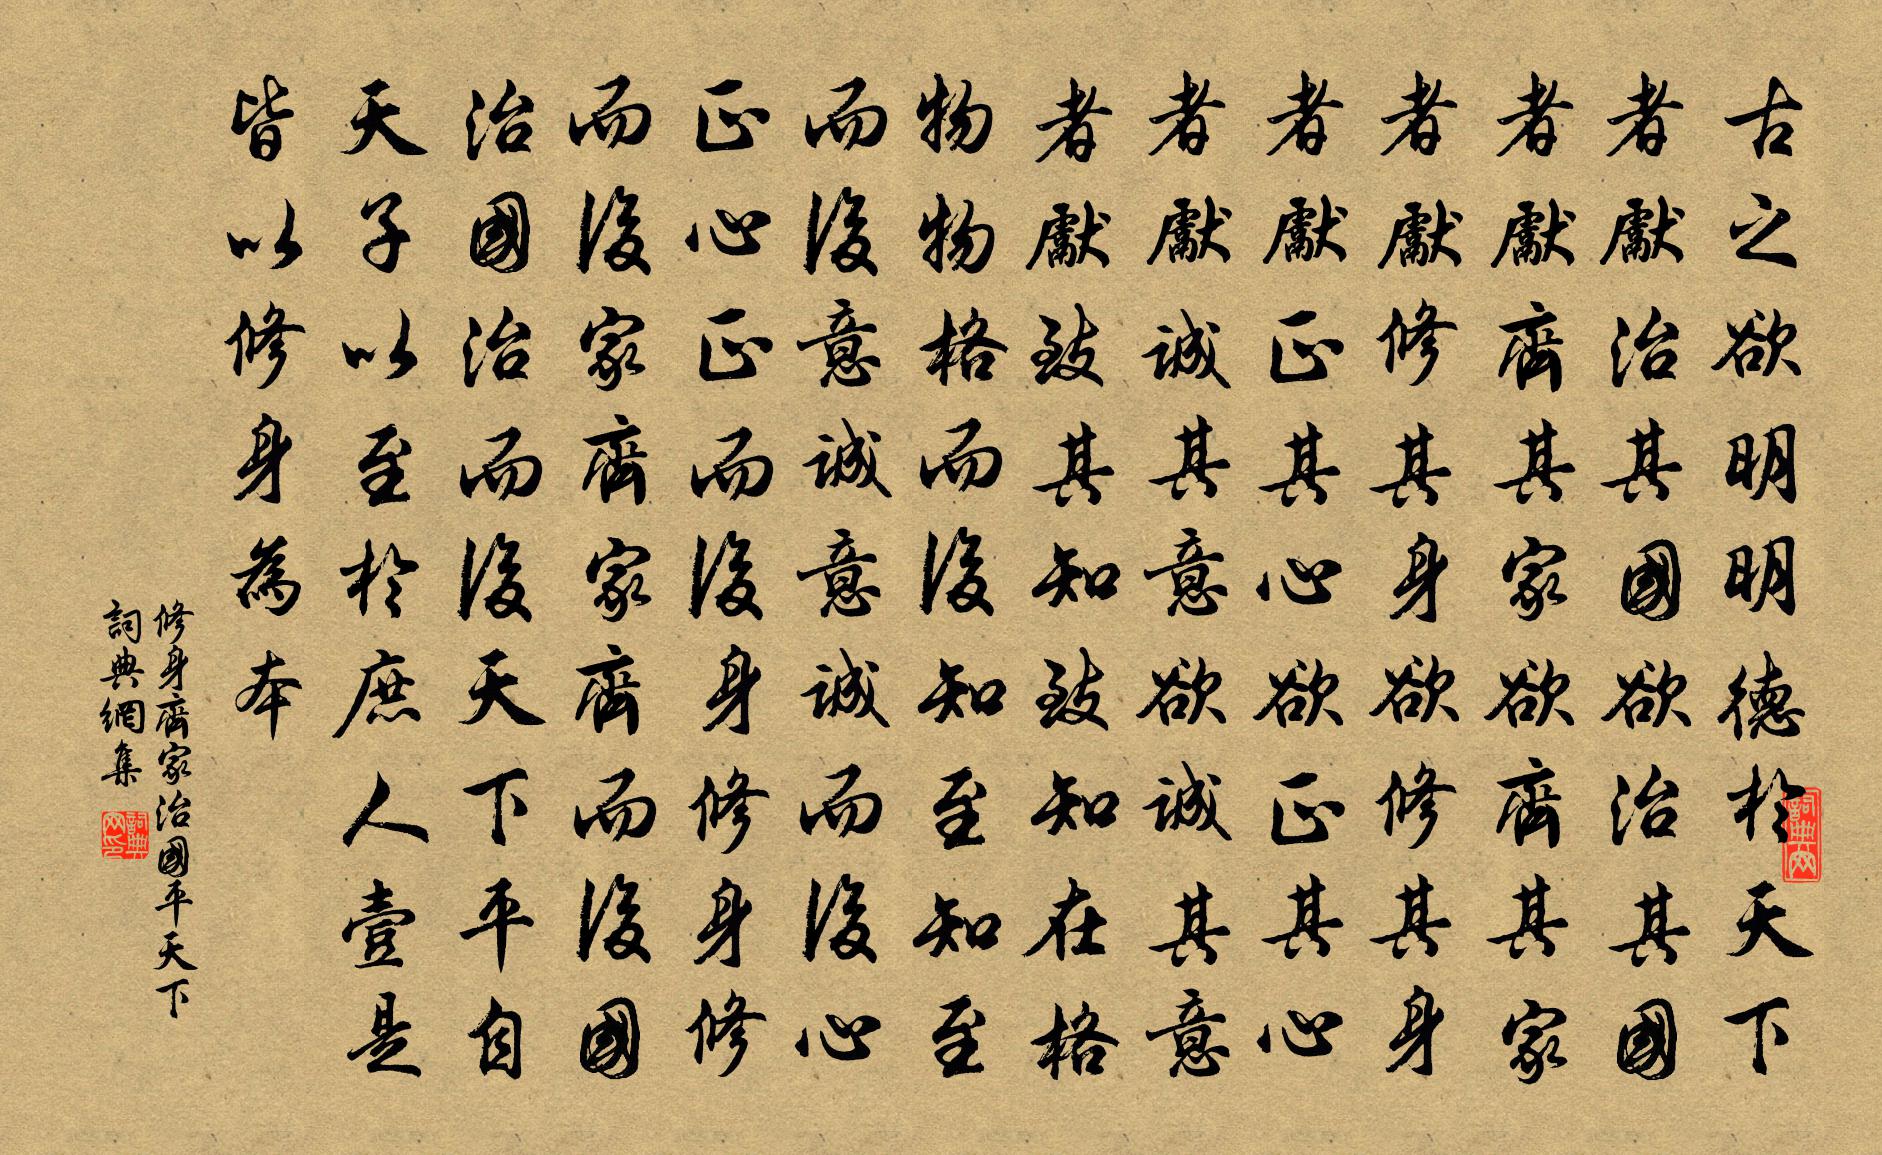 古之欲明明德於天下
者獻治其國欲治其國
者獻齊其家欲齊其家
者獻修其身欲修其身
者獻正其心欲正其心
者獻誠其意欲誠其意
者獻致其知致知在格
物物格而後知至知至
而後意誠意誠而後心
正心正而後身修身修
而後家齊家齊而後國
治國治而後天下平自
天子以至於庶人壹是
皆以修身為本
修身齊家治國平天下
詞典網集
詞典网
詞典网印